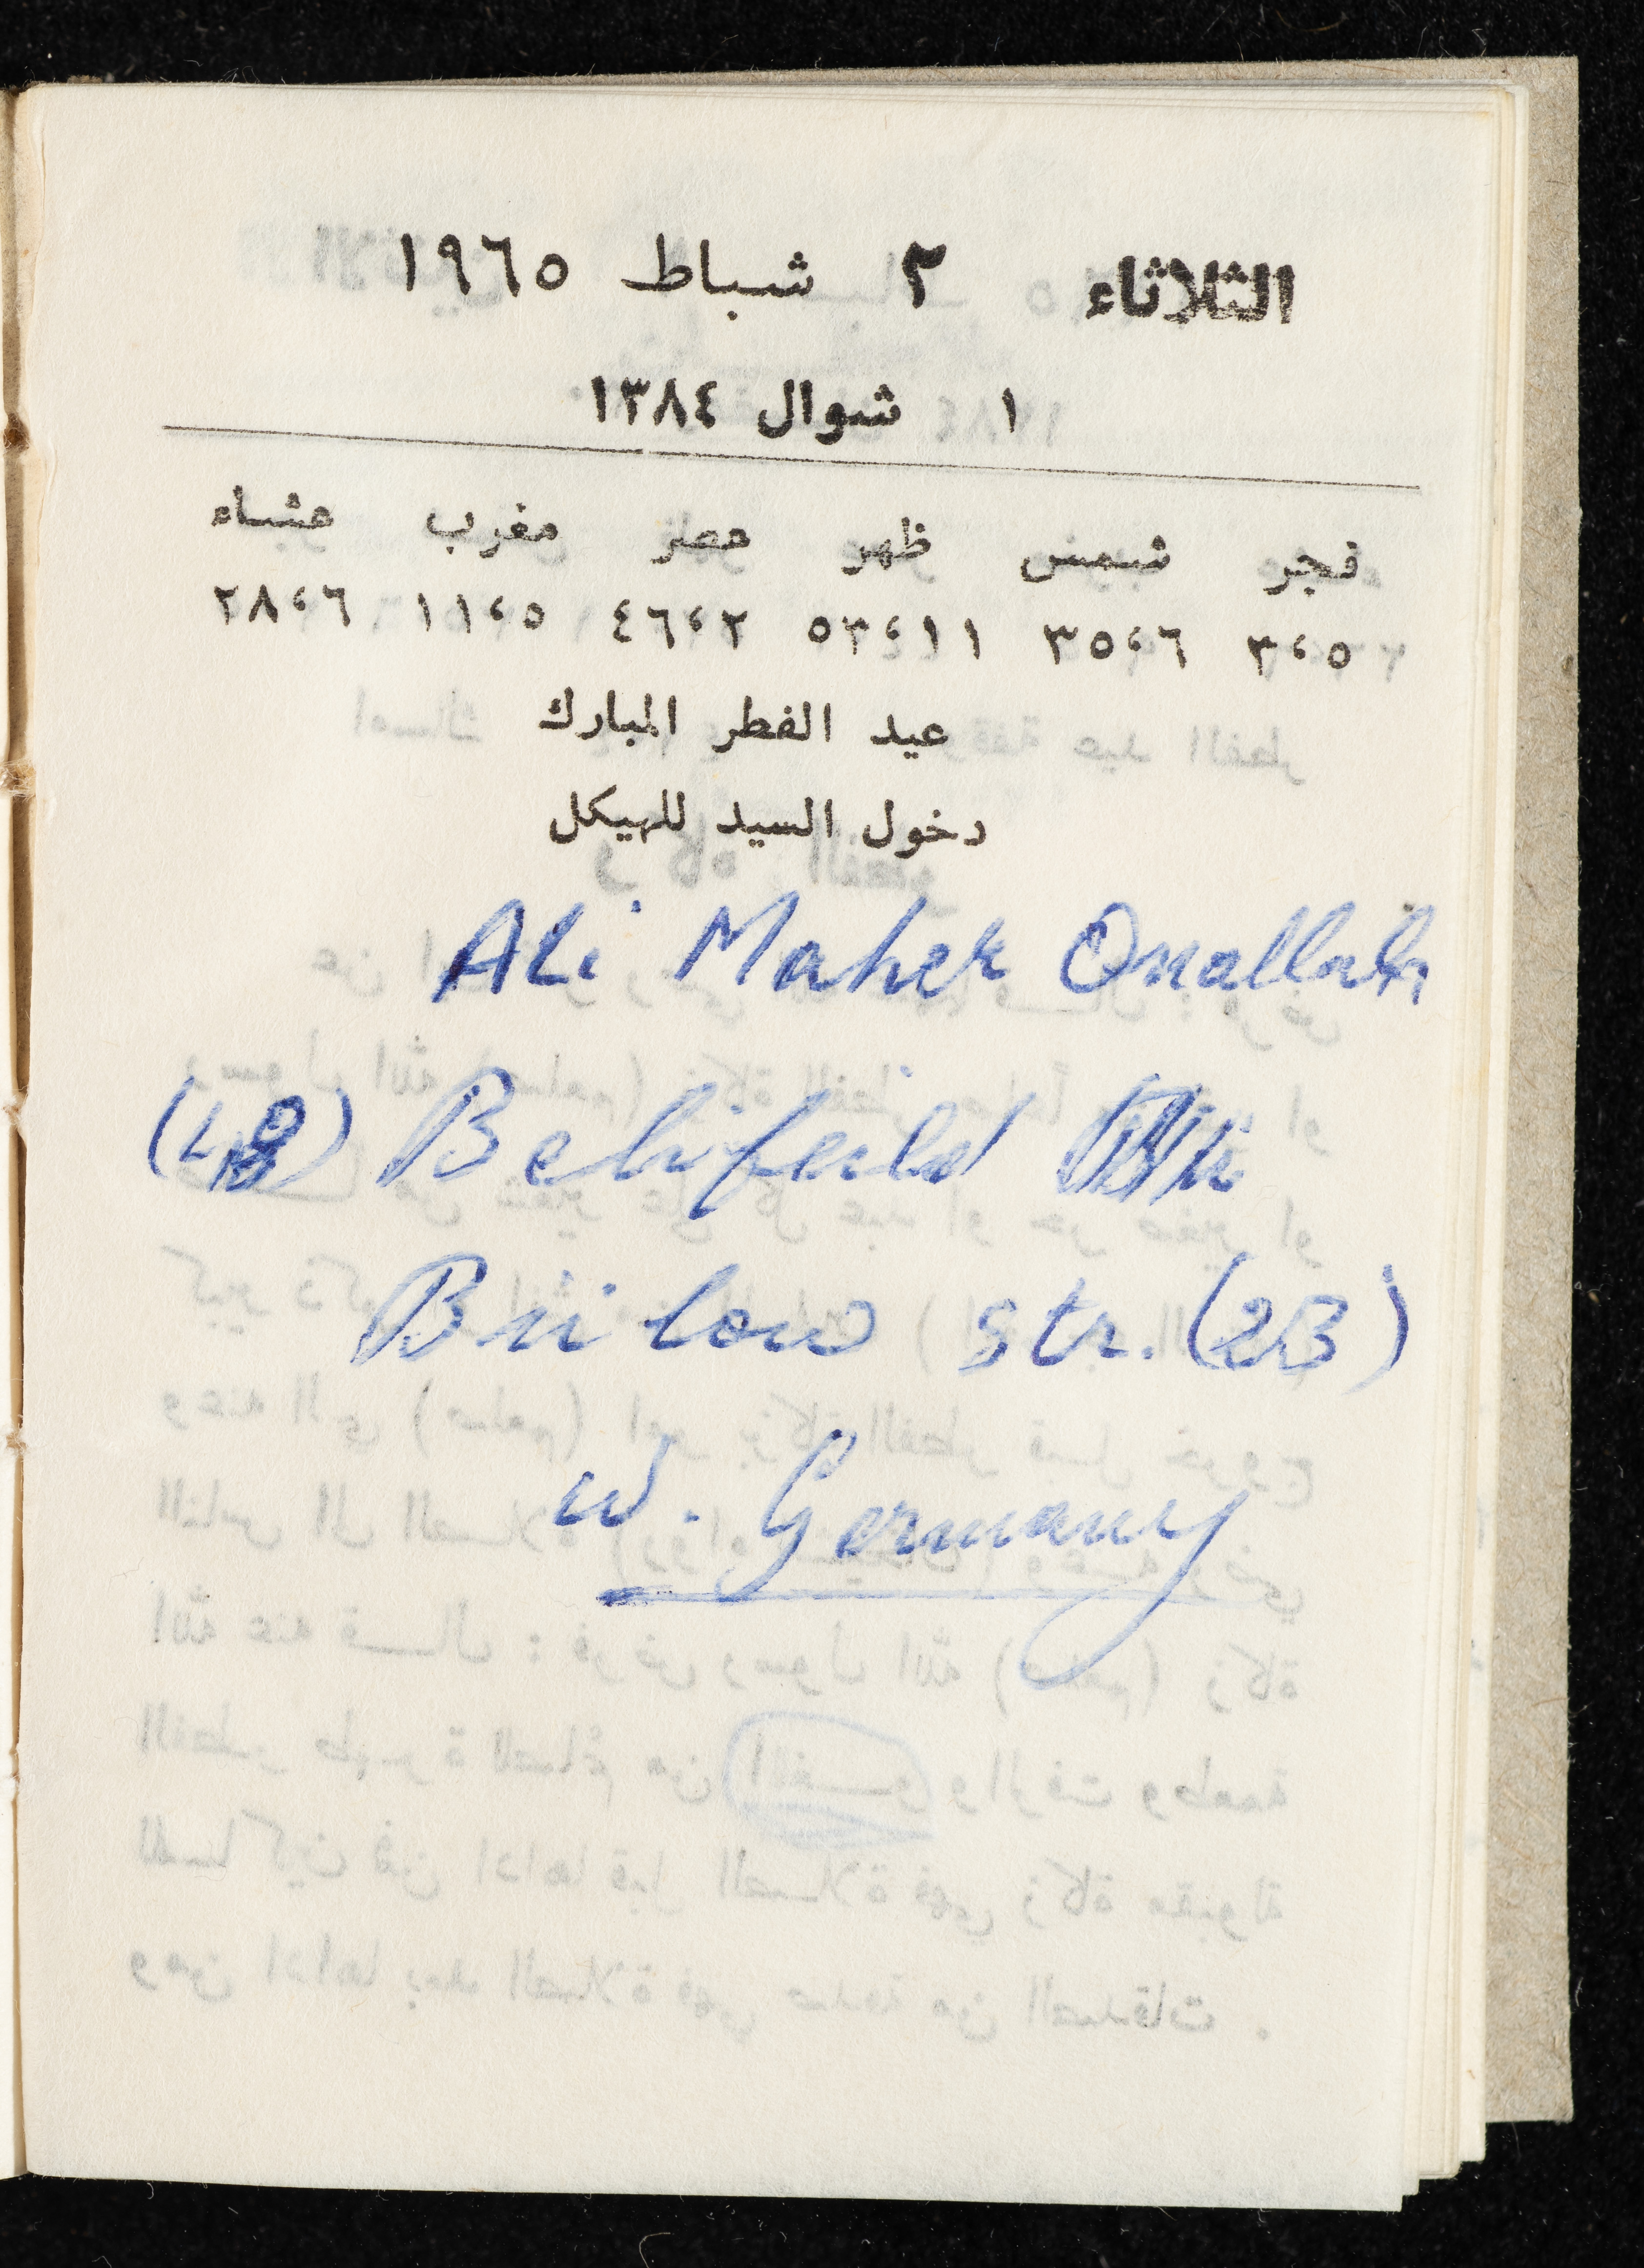 الثلاثاء ٢ شباط ١٩٦٥
١ شوال ١٣٨٤
فجر شمس ظهر عصر مغرب عشاء
٣،٥ ٣٥،٦ ٥٣،١١ ٤٦،٢ ١١،٥ ٢٨،٦
عيد الفطر المبارك
دخول السيد للهيكل
Ali Maher Onallah
(48) Belifeild
Bülow str. (23)
W. Germany